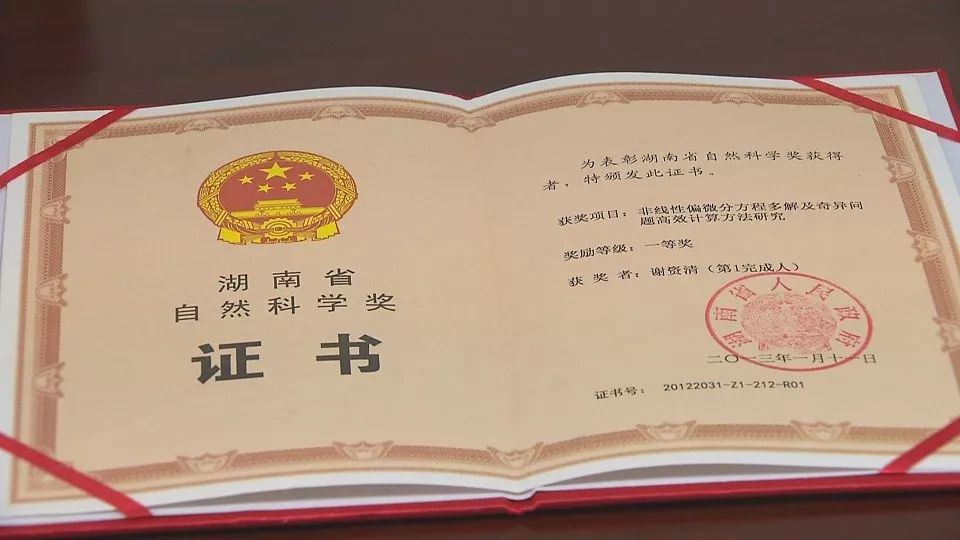 湖南省
自然科学奖
证书
为表彰湖南省自然科学奖获得
者，特颁发此证书。
获奖项目：非线性偏微分方程多解及奇异问
题高效计算方法研究
奖励等级：一等奖
获奖者：谢资清（第1完成人）
湖南省人民政府
二〇一三年一月十一日
证书号：20122031-Z1-212-R01